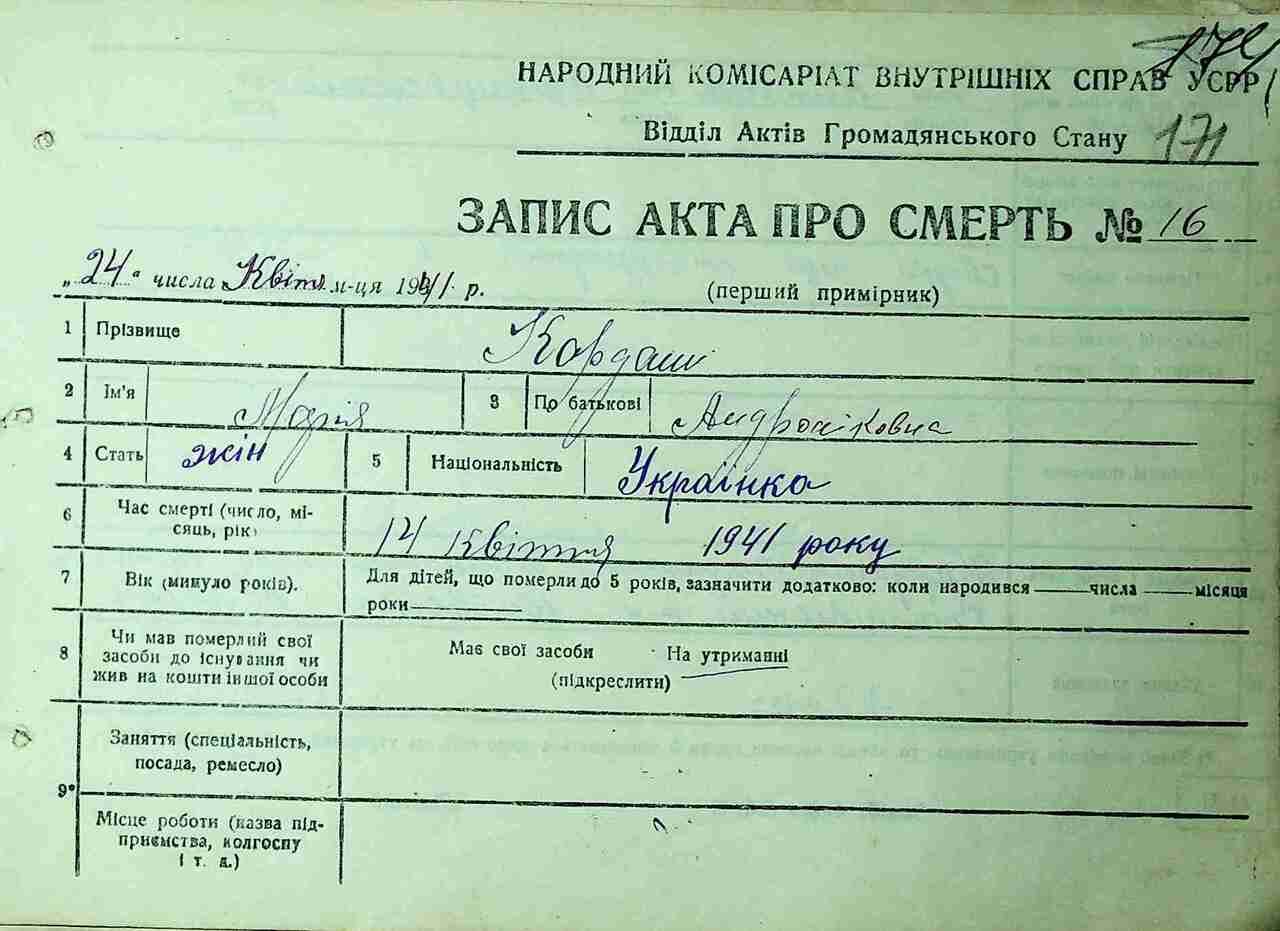 НАРОДНИЙ КОМІСАРІАТ ВНУТРІШНІХ СПРАВ УСРР
Відділ Актів Громадянського Стану 171
ЗАПИС АКТА ПРО СМЕРТЬ № 16
„24“ числа Квітн м-ця 1941 р. (перший примірник)
1 Прізвище Кордаш
2 Ім'я Марія 3 По батькові Андроніковна
4 Стать жін 5 Національність Українка
6 Час смерті (число, мі-
сяць, рік) 14 Квітня 1941 року
7 Вік (минуло років). Для дітей, що померли до 5 років, зазначити додатково: коли народився — числа — місяця
роки —
8 Чи мав померлий свої
засоби до існування чи
жив на кошти іншої особи
Має свої засоби На утриманні
(підкреслити)
9 Заняття (спеціальність,
посада, ремесло)
Місце роботи (назва під-
приємства, колгоспу
і т. д.)